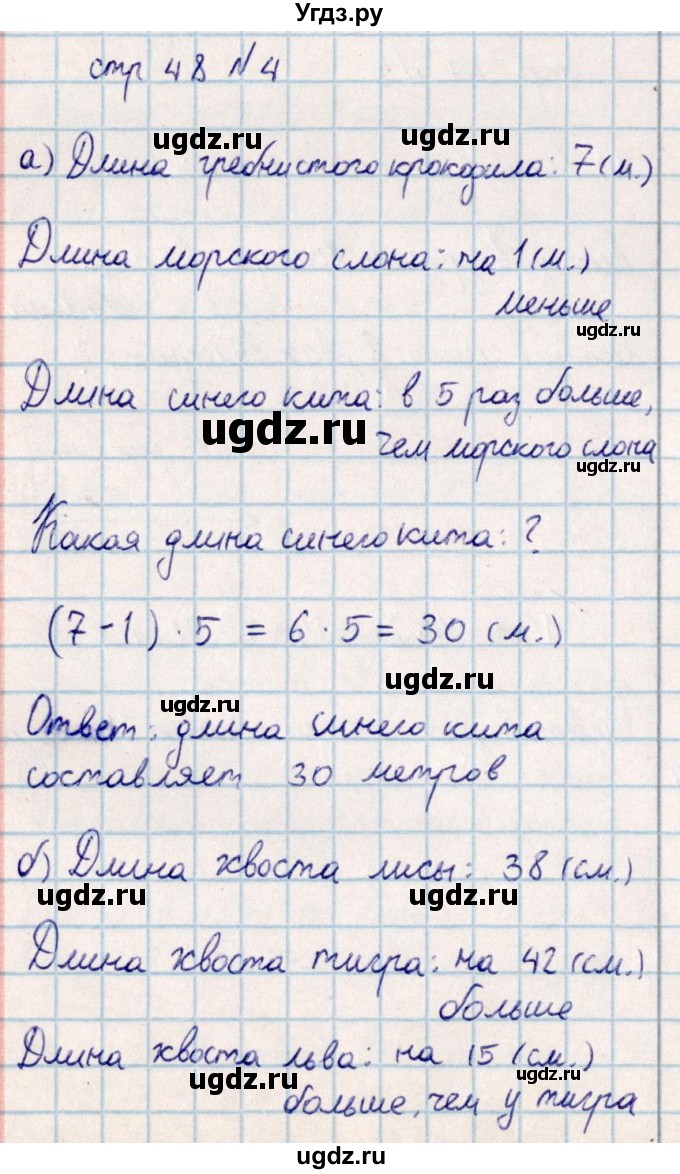 Угдз.ру
стр 48 №4
ugdz.ru ugdz.ru
а) Длина гребнистого крокодила: 7 (м.)
Длина морского слона: на 1 (м.)
меньше
ugdz.ru
Длина синего кита: в 5 раз больше,
ugdz.ru чем морского слона
ugdz.ru
Какая длина синего кита: ?
(7-1) · 5 = 6 · 5 = 30 (м.)
ugdz.ru
Ответ: длина синего кита
составляет 30 метров
б) Длина хвоста лисы: 38 (см.)
ugdz.ru ugdz.ru
Длина хвоста тигра: на 42 (см.)
больше
Длина хвоста льва: на 15 (см.)
ugdz.ru ugdz.ru
больше, чем у тигра
ugdz.ru